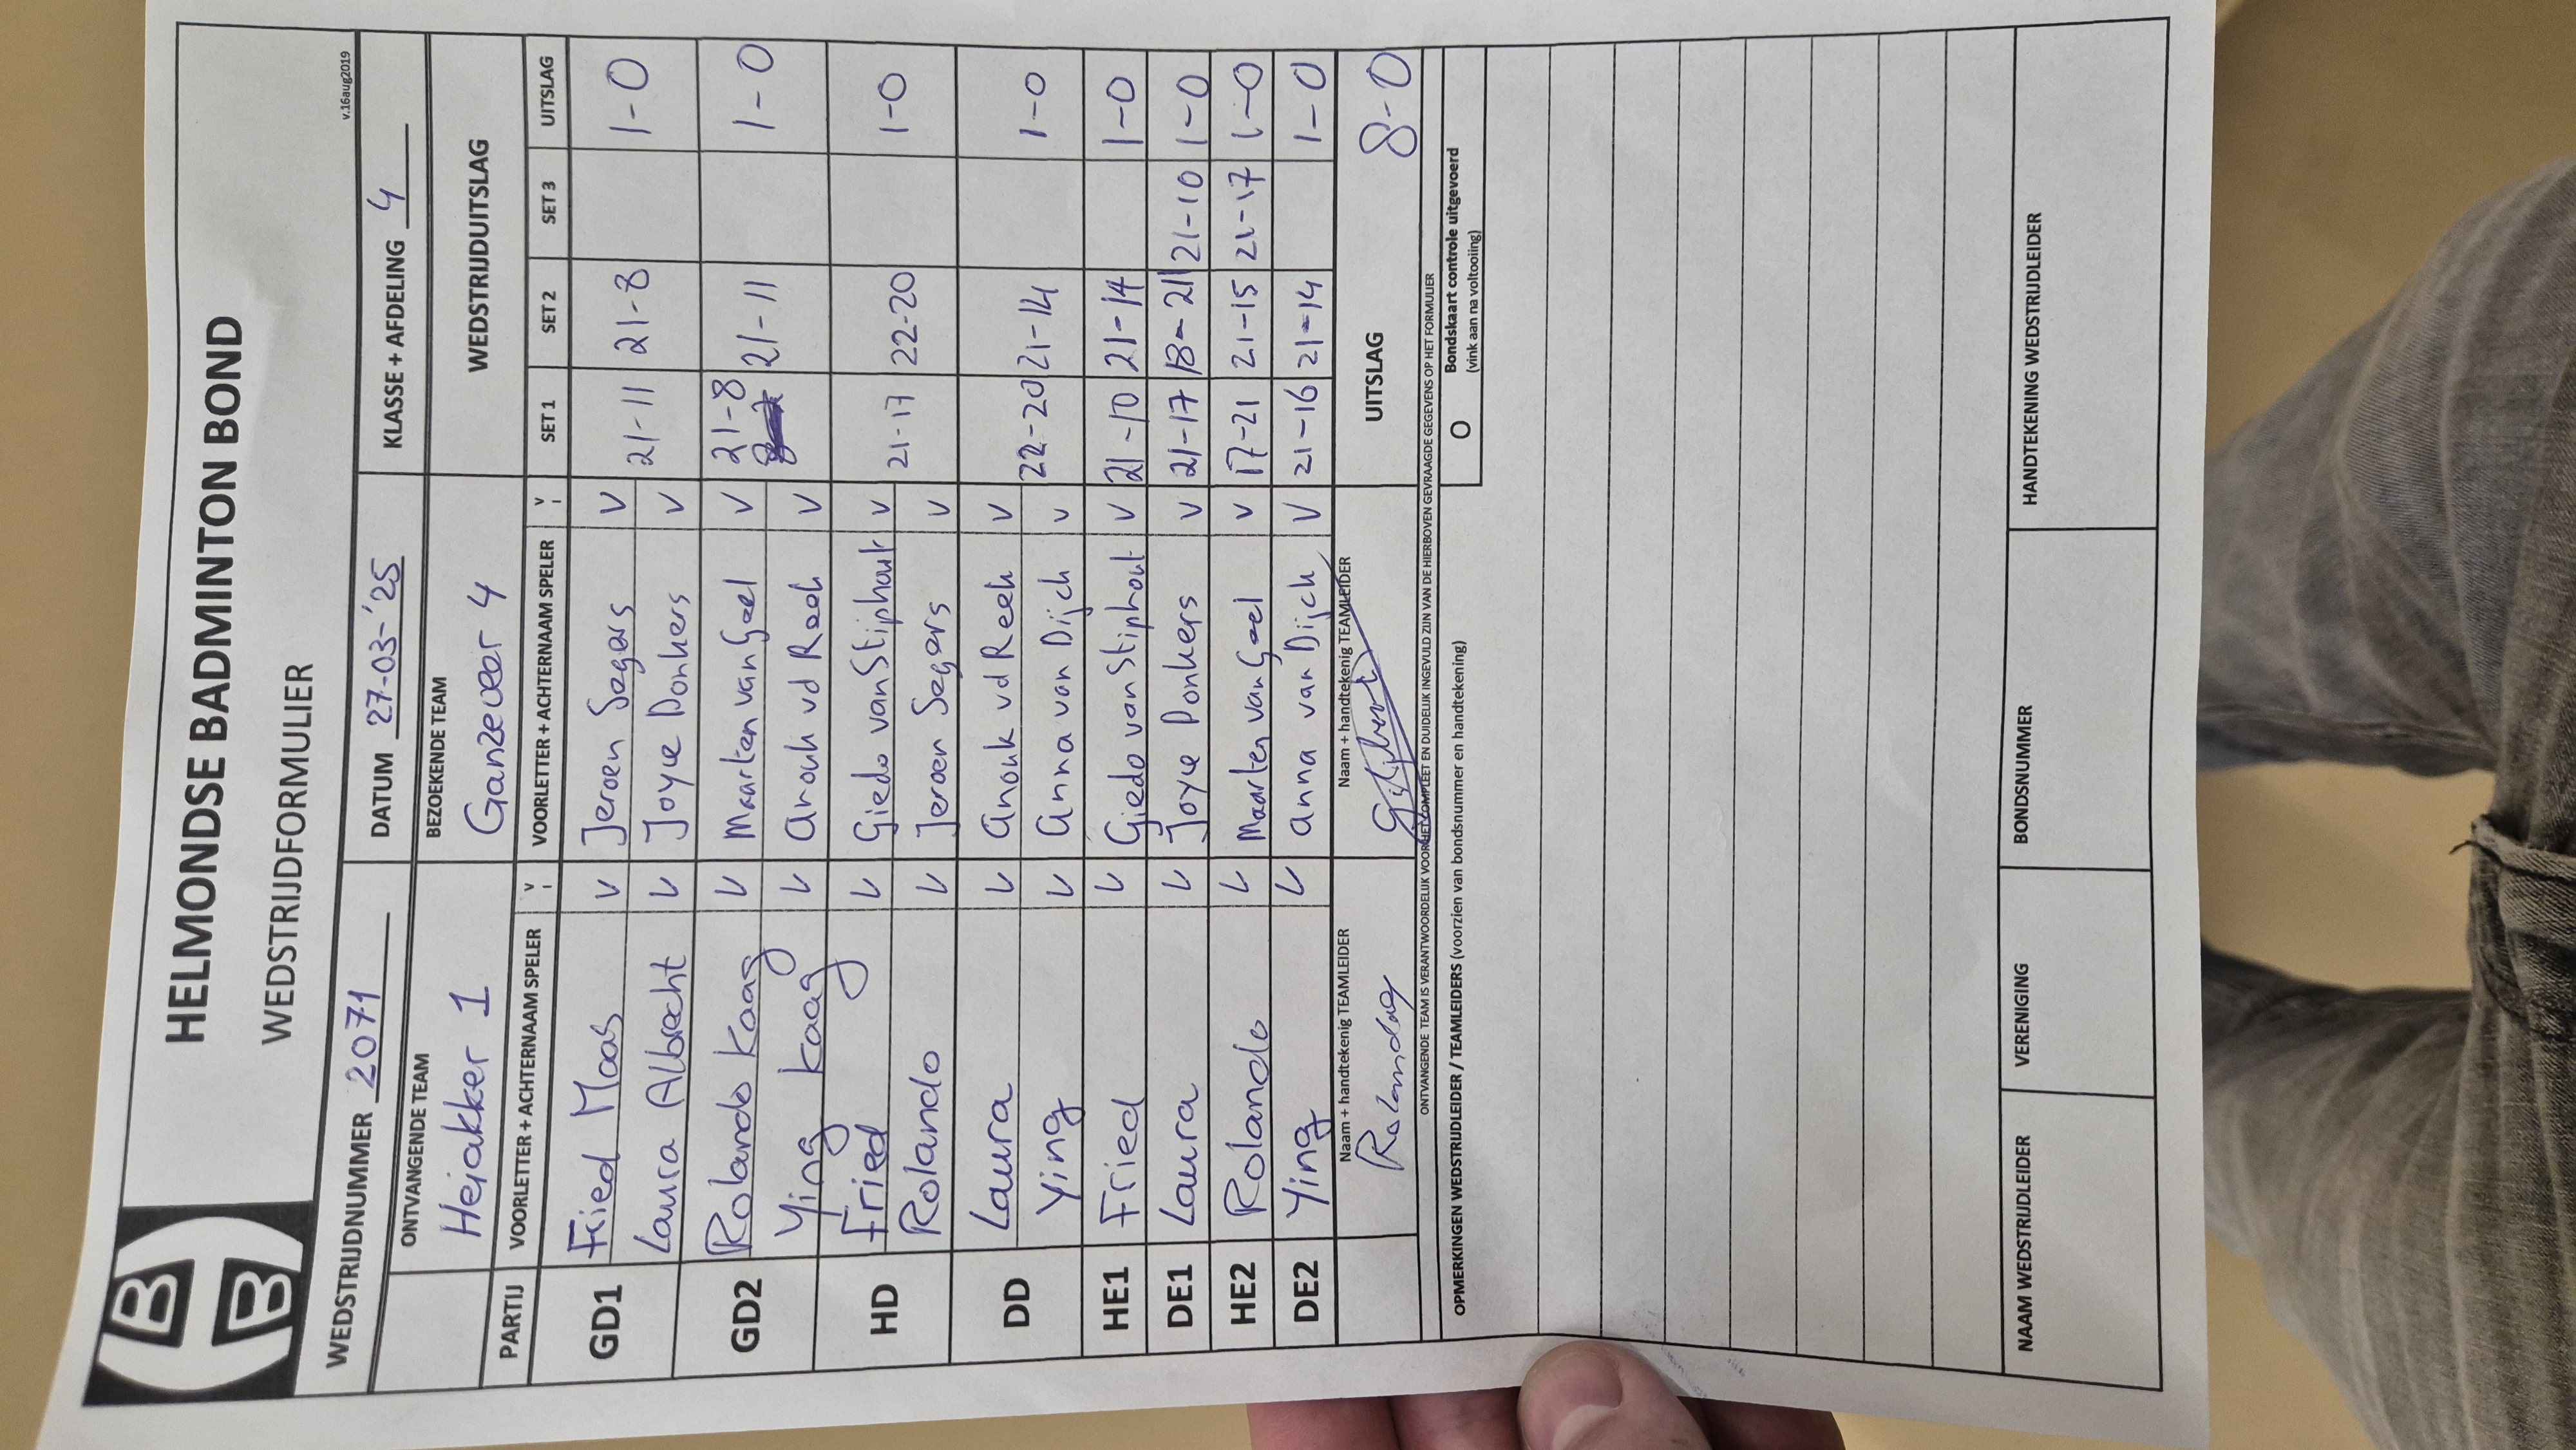 HBB
HELMONDSE BADMINTON BOND
WEDSTRIJDFORMULIER
v.16aug2019
WEDSTRIJDNUMMER 2071 DATUM 27-03-'25 KLASSE + AFDELING 4
ONTVANGENDE TEAM BEZOEKENDE TEAM WEDSTRIJDUITSLAG
Heiakker 1 Ganzeveer 4
PARTIJ VOORLETTER + ACHTERNAAM SPELER V VOORLETTER + ACHTERNAAM SPELER V SET 1 SET 2 SET 3 UITSLAG
GD1 Fried Maas V Jeroen Segers V 21-11 21-8 1-0
Laura Albrecht V Joyce Donkers V
GD2 Rolando Kaag V Maarten van Geel V 21-8 21-11 1-0
Ying Kaag V Anouk vd Reek V
HD Fried V Giedo van Stiphout V 21-17 22-20 1-0
Rolando V Jeroen Segers V
DD Laura V Anouk vd Reek V 22-20 21-14 1-0
Ying V Anna van Dijck V
HE1 Fried V Giedo van Stiphout V 21-10 21-14 1-0
DE1 Laura V Joyce Donkers V 21-17 18-21 21-10 1-0
HE2 Rolando V Maarten van Geel V 17-21 21-15 21-17 1-0
DE2 Ying V Anna van Dijck V 21-16 21-14 1-0
Naam + handtekenig TEAMLEIDER Naam + handtekenig TEAMLEIDER UITSLAG 8-0
ONTVANGENDE TEAM IS VERANTWOORDELIJK VOOR HET COMPLEET EN DUIDELIJK INGEVULD ZIJN VAN DE HIERBOVEN GEVRAAGDE GEGEVENS OP HET FORMULIER
OPMERKINGEN WEDSTRIJDLEIDER / TEAMLEIDERS (voorzien van bondsnummer en handtekening)
O Bondskaart controle uitgevoerd
(vink aan na voltooiing)
NAAM WEDSTRIJDLEIDER VERENIGING BONDSNUMMER HANDTEKENING WEDSTRIJDLEIDER